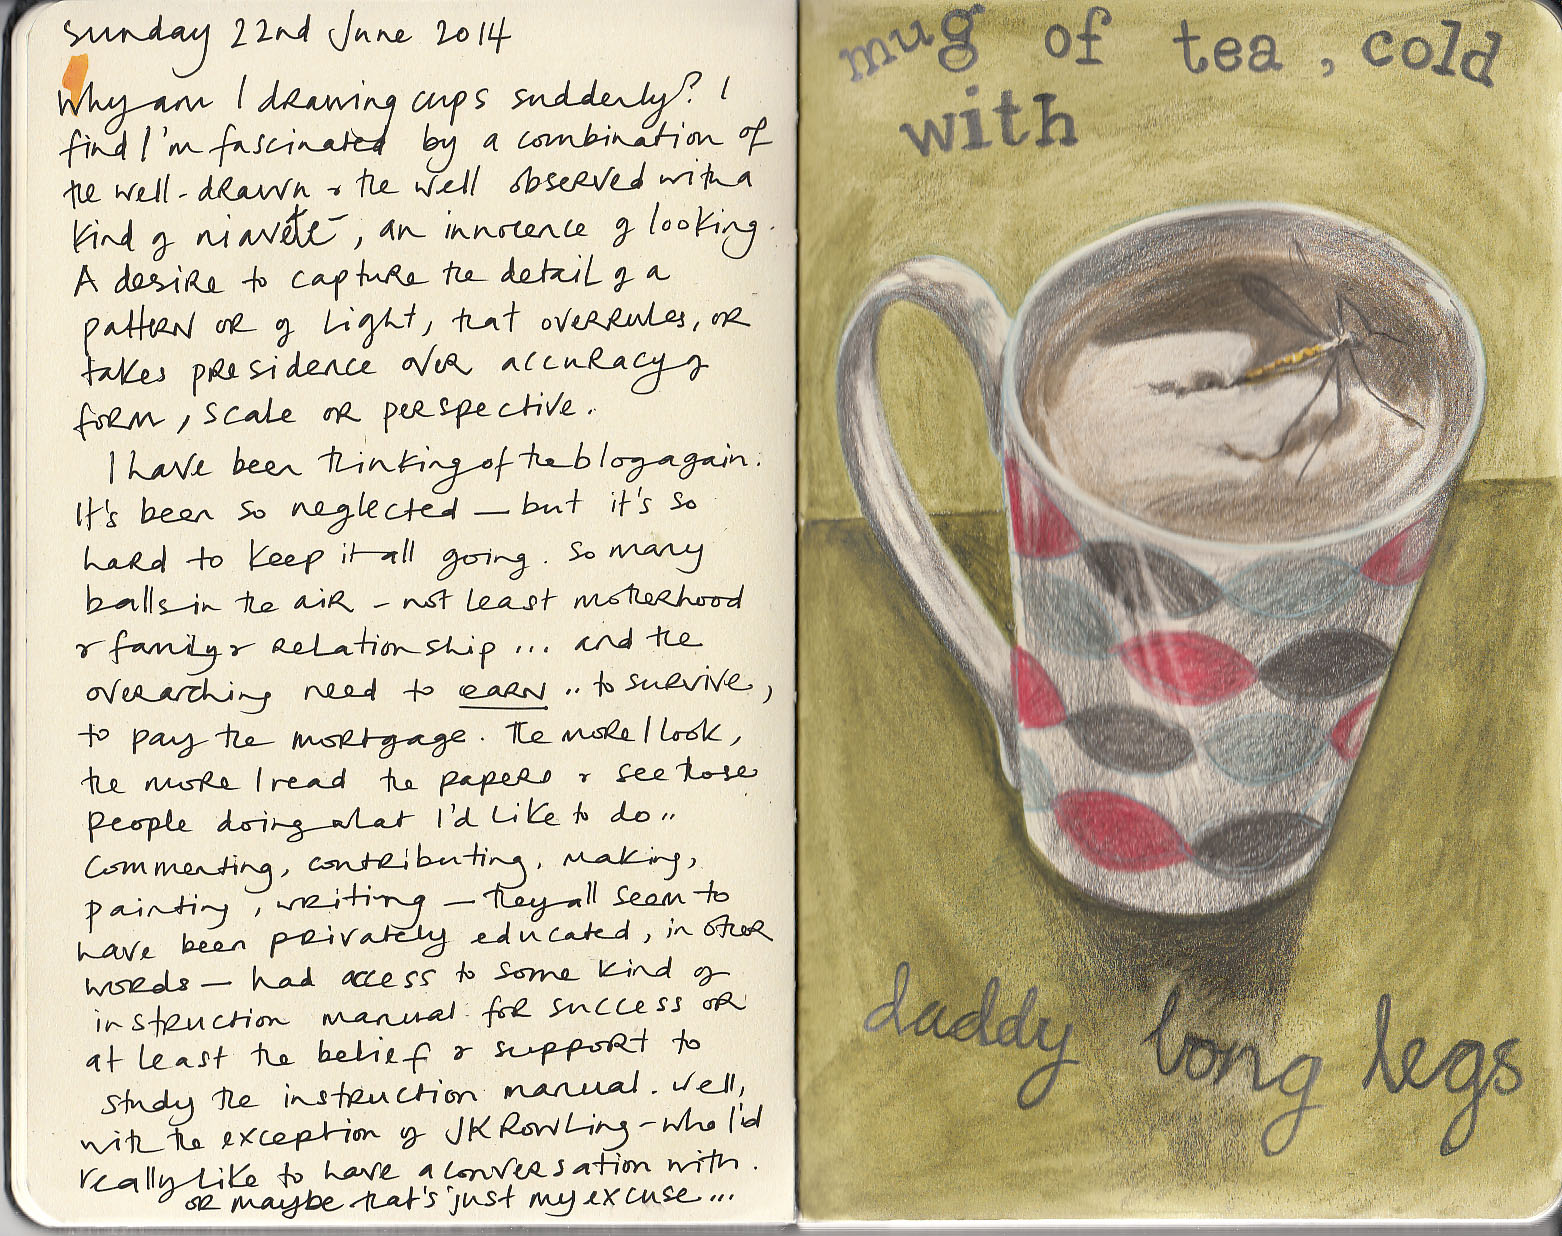 Sunday 22nd June 2014
Why am I drawing cups suddenly? I
find I'm fascinated by a combination of
the well-drawn & the well observed with a
kind of niaveté, an innocence of looking.
A desire to capture the detail of a
pattern or of light, that overrules, or
takes presidence over accuracy of
form, scale or perspective.
I have been thinking of the blog again.
It's been so neglected – but it's so
hard to keep it all going. So many
balls in the air – not least motherhood
& family & relationship ... and the
overarching need to earn .. to survive,
to pay the mortgage. The more I look,
the more I read the papers & see those
people doing what I'd like to do ..
Commenting, contributing, making,
painting, writing – they all seem to
have been privately educated, in other
words – had access to some kind of
instruction manual for success or
at least the belief & support to
study the instruction manual. Well,
with the exception of JK Rowling – who I'd
really like to have a conversation with.
or maybe that's just my excuse...
mug of tea, cold
with
daddy long legs